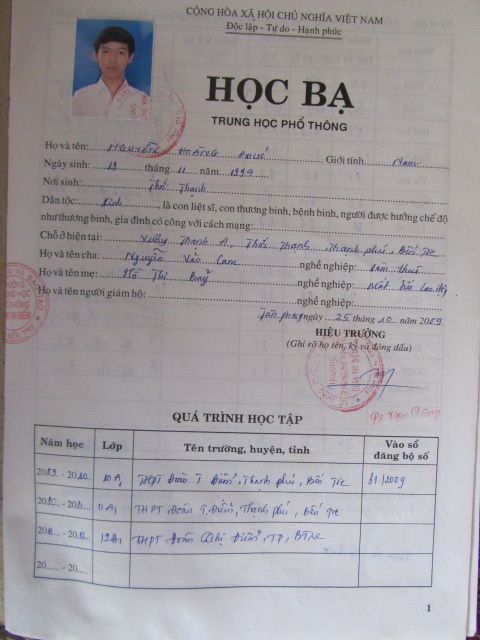 CỘNG HÒA XÃ HỘI CHỦ NGHĨA VIỆT NAM
Độc lập - Tự do - Hạnh phúc
HỌC BẠ
TRUNG HỌC PHỔ THÔNG
Họ và tên: NGUYỄN HOÀNG PHÚC Giới tính Nam
Ngày sinh: 19 tháng 11 năm 1994
Nơi sinh: Thới Thạnh
Dân tộc: Kinh, là con liệt sĩ, con thương binh, bệnh binh, người được hưởng chế độ
như thương binh, gia đình có công với cách mạng:
Chỗ ở hiện tại: Thạnh A, Thới Thạnh, Thạnh phú, Bến Tre
Họ và tên cha: Nguyễn Văn Cam nghề nghiệp: Làm thuê
Họ và tên mẹ: Hồ Thị Bảy nghề nghiệp:
Họ và tên người giám hộ: nghề nghiệp:
ngày 25 tháng 10 năm 2009
HIỆU TRƯỞNG
(Ghi rõ họ tên, ký và đóng dấu)
QUÁ TRÌNH HỌC TẬP
Năm học Lớp Tên trường, huyện, tỉnh Vào sổ đăng bộ số
2009 - 2010 10A1 THPT Đoàn T Điểm, Thạnh phú, Bến Tre 31/2009
2010 - 2011 11A1 THPT Đoàn T. Điểm, Thạnh phú, Bến Tre
2011 - 2012 12A1 THPT Đoàn Thị Điểm, TP, BTre
20...... - 20......
1